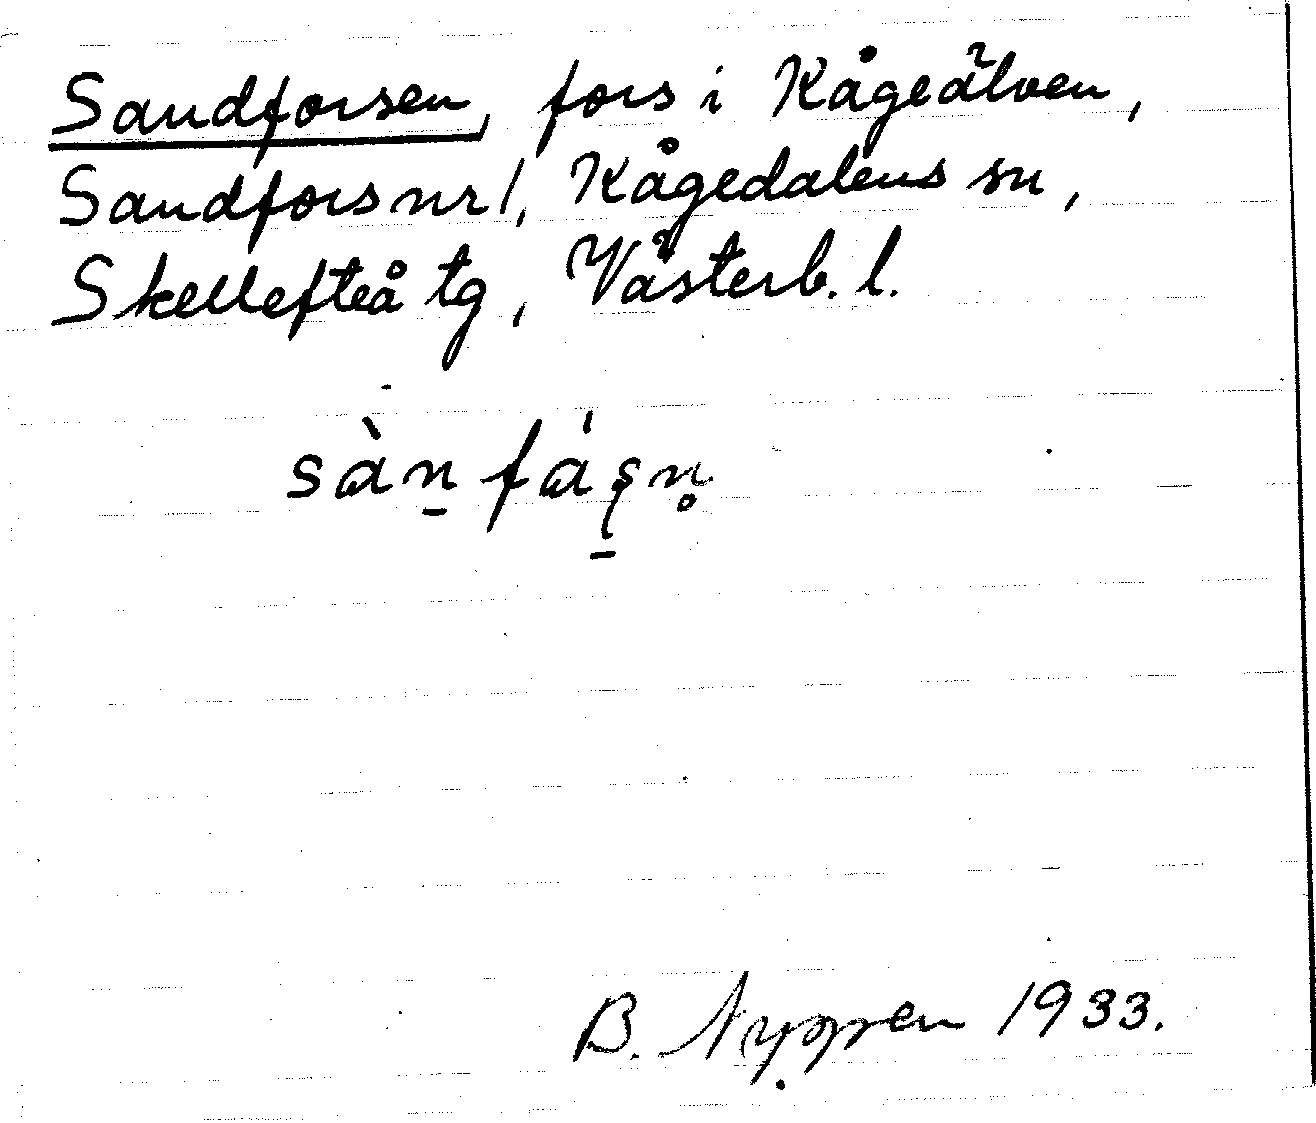 Sandforsen, fors i Kågeälven,
Sandfors nr 1, Kågedalens sn,
Skellefteå tg, Västerb. l.
sàn̠ fáʂ̠n̥
B. Nyppen 1933.